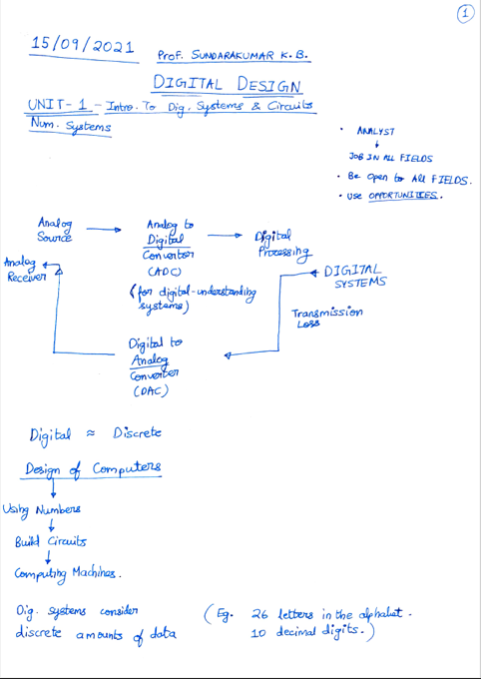 1
15/09/2021
Prof. SUNDARAKUMAR K. B.
DIGITAL DESIGN
UNIT-1 - Intro. To Dig. Systems & Circuits
Num. Systems
• ANALYST
↓
JOB IN ALL FIELDS
• Be Open to All FIELDS.
• Use OPPORTUNITIES.
Analog
Source
→
Analog to
Digital
Converter
(ADC)
(for digital-understanding
systems)
→
Digital
Processing
DIGITAL
SYSTEMS
Transmission
Loss
Digital to
Analog
Converter
(DAC)
Analog
Receiver
Digital ≈ Discrete
Design of Computers
↓
Using Numbers
↓
Build Circuits
↓
Computing Machines.
Dig. systems consider
discrete amounts of data
(Eg. 26 letters in the alphabet.
10 decimal digits.)